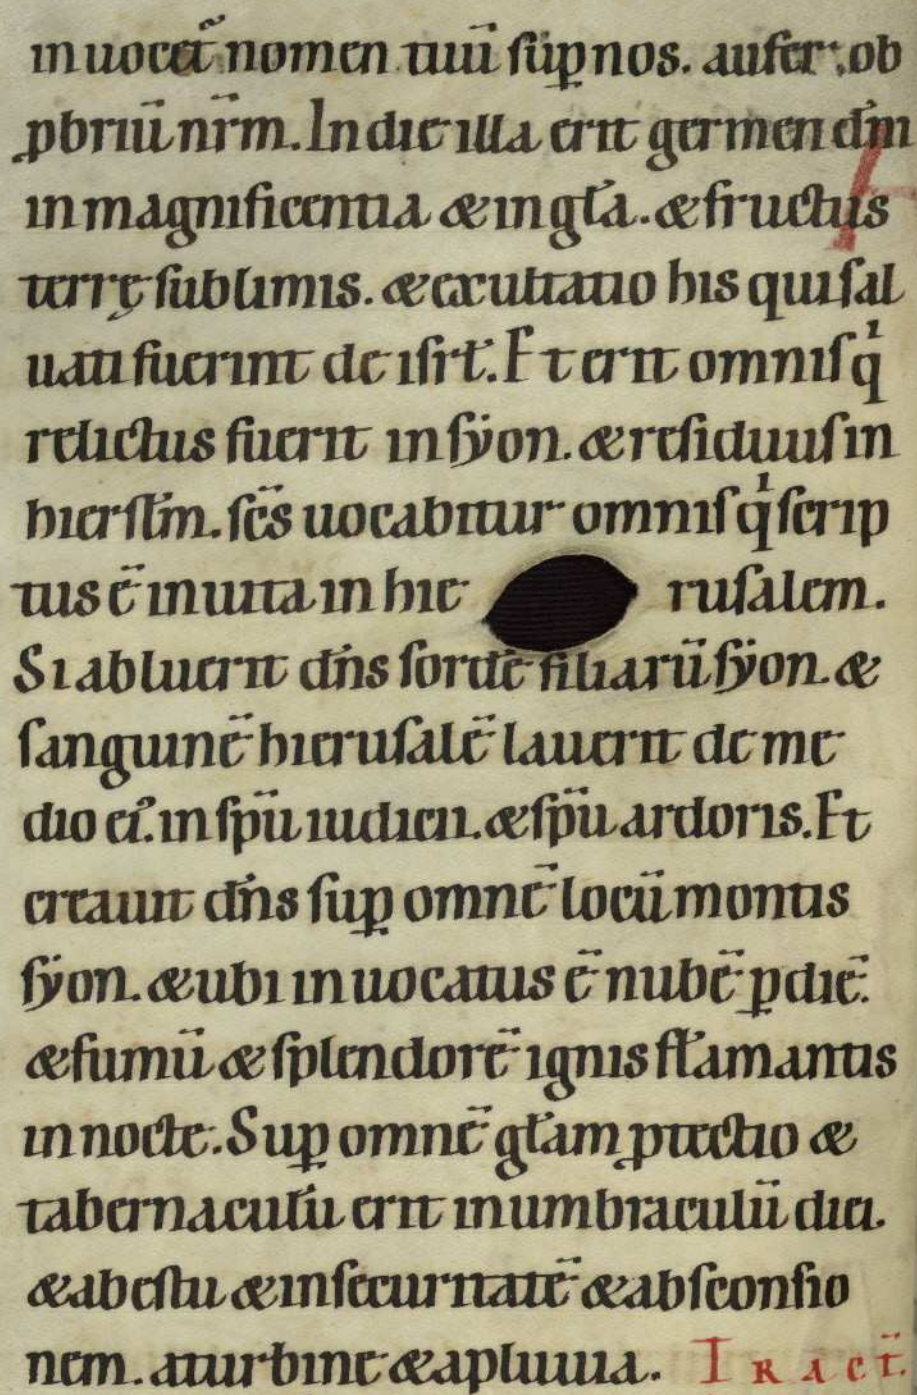 inuocet̃ nomen tuũ sup̲ nos. aufer ob
ꝓbriũ nr̃m. In die illa erit germen dñi
in magnificentia & in gl̃a. & fructus
terrę sublimis. & exultatio his qui sal
uati fuerint de isrl̃. Et erit omnis qⁱ
relictus fuerit in syon. & residuus in
hierslm̃. scs̃ uocabitur omnis qⁱ scrip
tus ẽ in uita in hie rusalem.
Si abluerit dñs sordẽ filiarũ syon. &
sanguinẽ hierusalẽ lauerit de me
dio ei᷒. in sp̃u iudicii. & sp̃u ardoris. Et
creauit dñs suꝑ omnẽ locũ montis
syon. & ubi inuocatus ẽ nubẽ ꝑ diẽ.
& fumũ & splendorẽ ignis flamantis
in nocte. Suꝑ omnẽ gl̃am ꝓtectio &
tabernaculũ erit in umbraculũ diei.
& ab estu & in securitatẽ & absconsio
nem. a turbine & a pluuia. Tract̃.